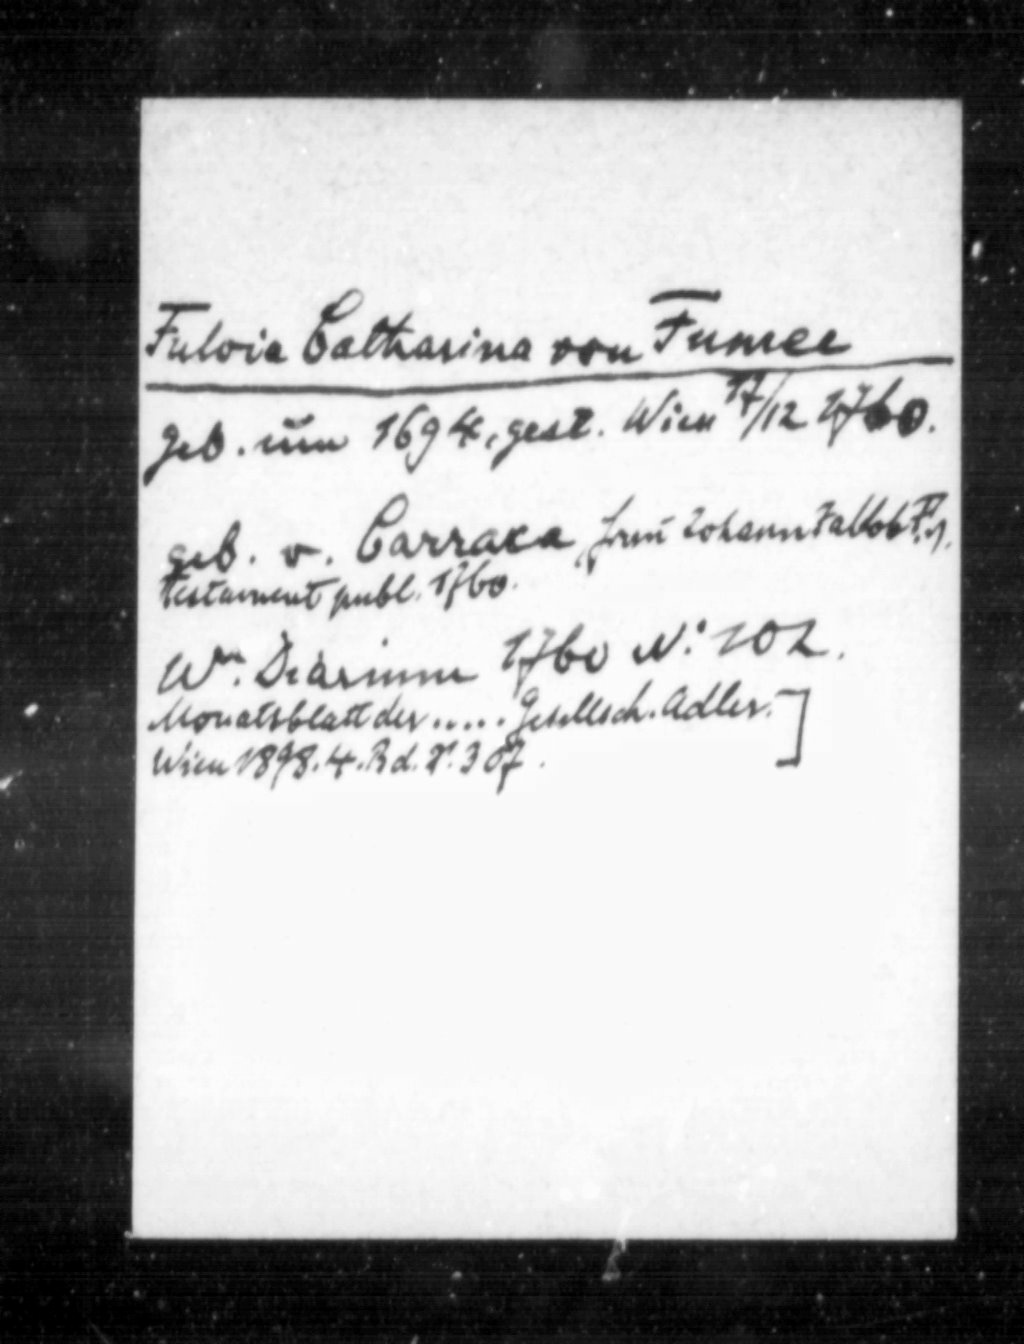 Fulvia Catharina von Fumee
geb. um 1694, gest. Wien 17/12 1760.
geb. v. Carrara Johann
Testament publ. 1760.
Wr. Diarium 1760 N: 102.
Monatsblatt der..... Gesellsch. Adler.]
Wien 1898. 4. Bd. S. 307.